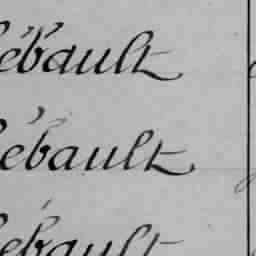 ébault
ébault
ebault